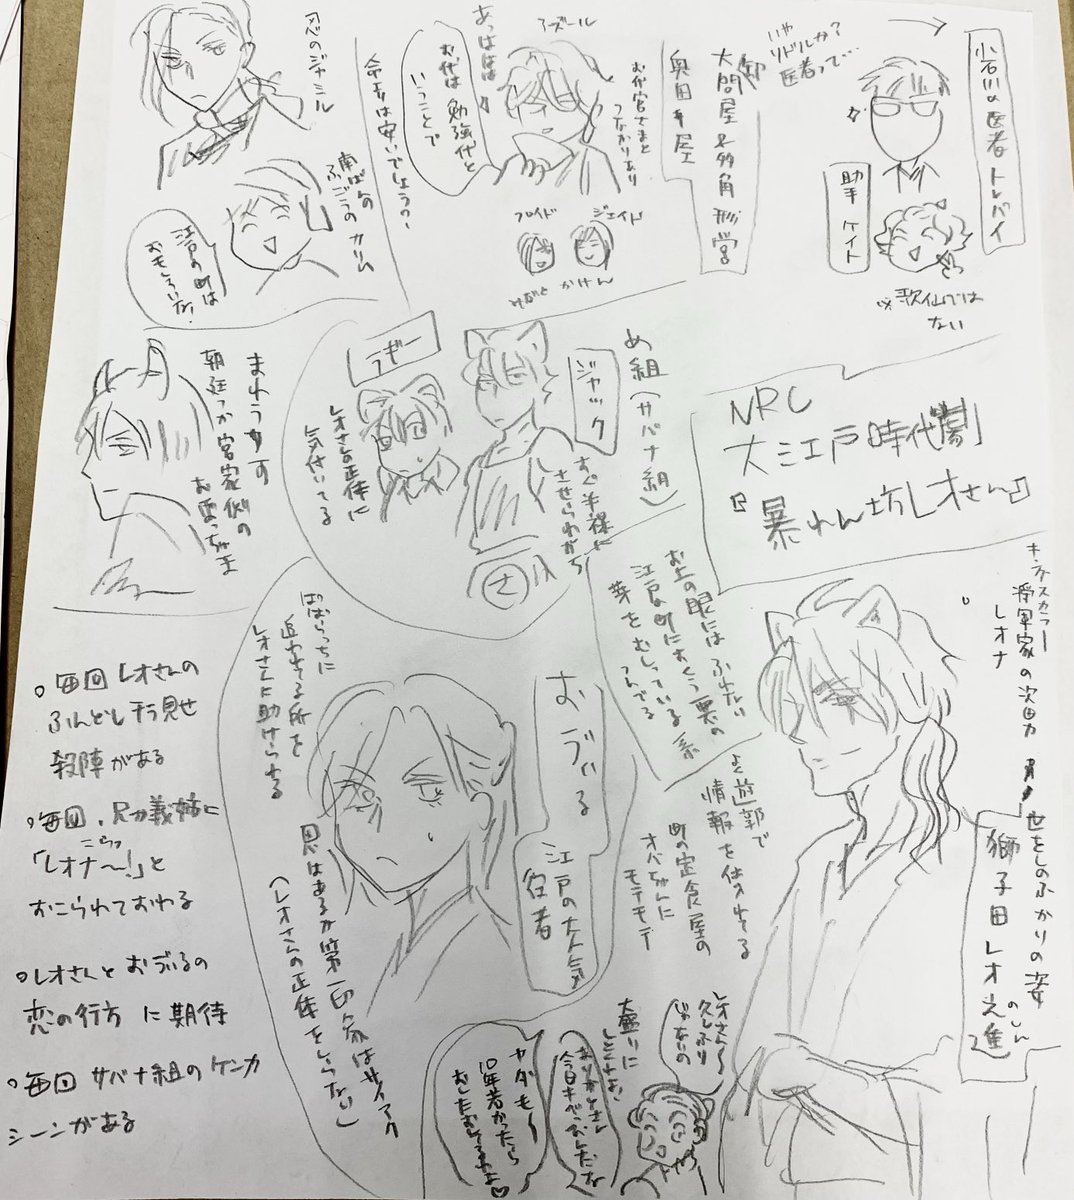 小石川の医者 トレバイ
助手 ケイト
※歌仙では
ない
いや
リドルか?
医者って…
大問屋 多角形営
奥田キ屋
アズール
お代官さまと
つながりあり
あっははは
お代は勉強代と
いうことで
命よりは安いでしょう?
ジェイド
フロイド
かけん
忍のジャミル
南ばんの
ふごうの カリム
江戸の町は
おもしろいな!
NRC
大江戸時代劇
『暴れん坊レオさん』
め組(サバナ組)
ジャック
すぐ半裸に
させられがち
さ
ラギー
レオさんの正体に
気付いてる
まれうすの
朝廷っか宮家側の
お要っちま
キングスカラー
将軍家の次男
レオナ
世をしのぶかりの姿
獅子田レオ之進
のしん
お上の眼にはふれない
江戸の町にすくう悪の
芽をむしっている系
よく遊郭で
情報を仕入れてる
町の定食屋の
オバちゃんに
モテモテ
おづぃる
江戸の大人気
役者
ぱぱらっちに
追われてる所を
レオさんに助けられる
恩はあるが第一印象はサイアク
(レオさんの正体をしらない)
レオさん〜
久しぶり
じゃないの
大盛りに
しといたよ!
ヤダモ〜
10年若かったら
おしたおしてるわよ♡
○毎回 レオさんの
ふんどしチラ見せ
殺陣がある
○毎回、兄か義姉に
こらっ
「レオナ〜!」と
おこられておわる
○レオさんと おづぃるの
恋の行方 に期待
○毎回 サバナ組のケンカ
シーンがある